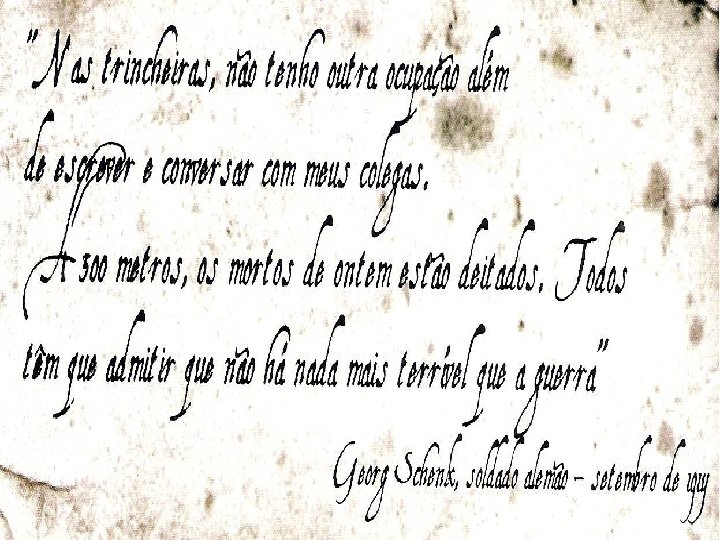 "Nas trincheiras, não tenho outra ocupação além
de escrever e conversar com meus colegas.
A 300 metros, os mortos de ontem estão deitados. Todos
têm que admitir que não há nada mais terrível que a guerra"
Georg Schenk, soldado alemão – setembro de